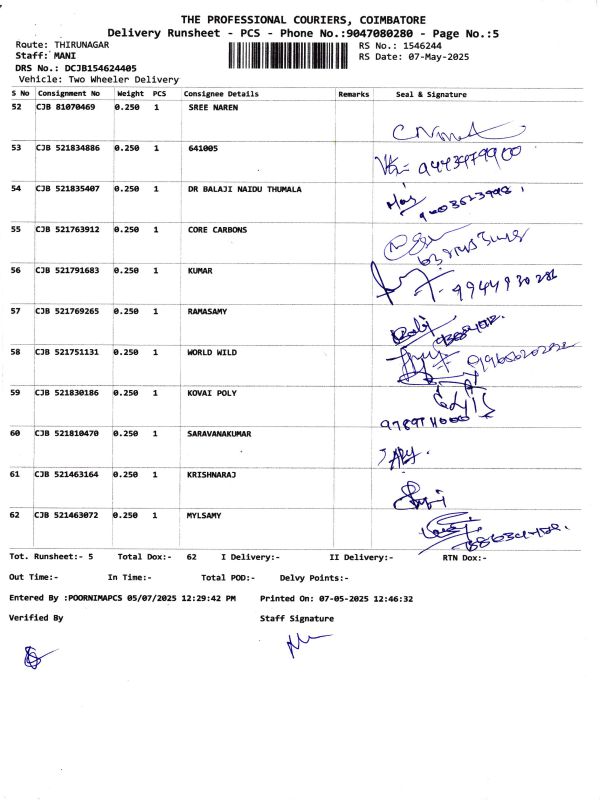 THE PROFESSIONAL COURIERS, COIMBATORE
Delivery Runsheet - PCS - Phone No.:9047080280 - Page No.:5
Route: THIRUNAGAR RS No.: 1546244
Staff: MANI RS Date: 07-May-2025
DRS No.: DCJB154624405
Vehicle: Two Wheeler Delivery
S No Consignment No Weight PCS Consignee Details Remarks Seal & Signature
52 CJB 81070469 0.250 1 SREE NAREN
53 CJB 521834886 0.250 1 641005 9443979900
54 CJB 521835407 0.250 1 DR BALAJI NAIDU THUMALA
55 CJB 521763912 0.250 1 CORE CARBONS
56 CJB 521791683 0.250 1 KUMAR
57 CJB 521769265 0.250 1 RAMASAMY
58 CJB 521751131 0.250 1 WORLD WILD
59 CJB 521830186 0.250 1 KOVAI POLY
60 CJB 521810470 0.250 1 SARAVANAKUMAR
61 CJB 521463164 0.250 1 KRISHNARAJ
62 CJB 521463072 0.250 1 MYLSAMY
Tot. Runsheet:- 5 Total Dox:- 62 I Delivery:- II Delivery:- RTN Dox:-
Out Time:- In Time:- Total POD:- Delvy Points:-
Entered By :POORNIMAPCS 05/07/2025 12:29:42 PM Printed On: 07-05-2025 12:46:32
Verified By Staff Signature